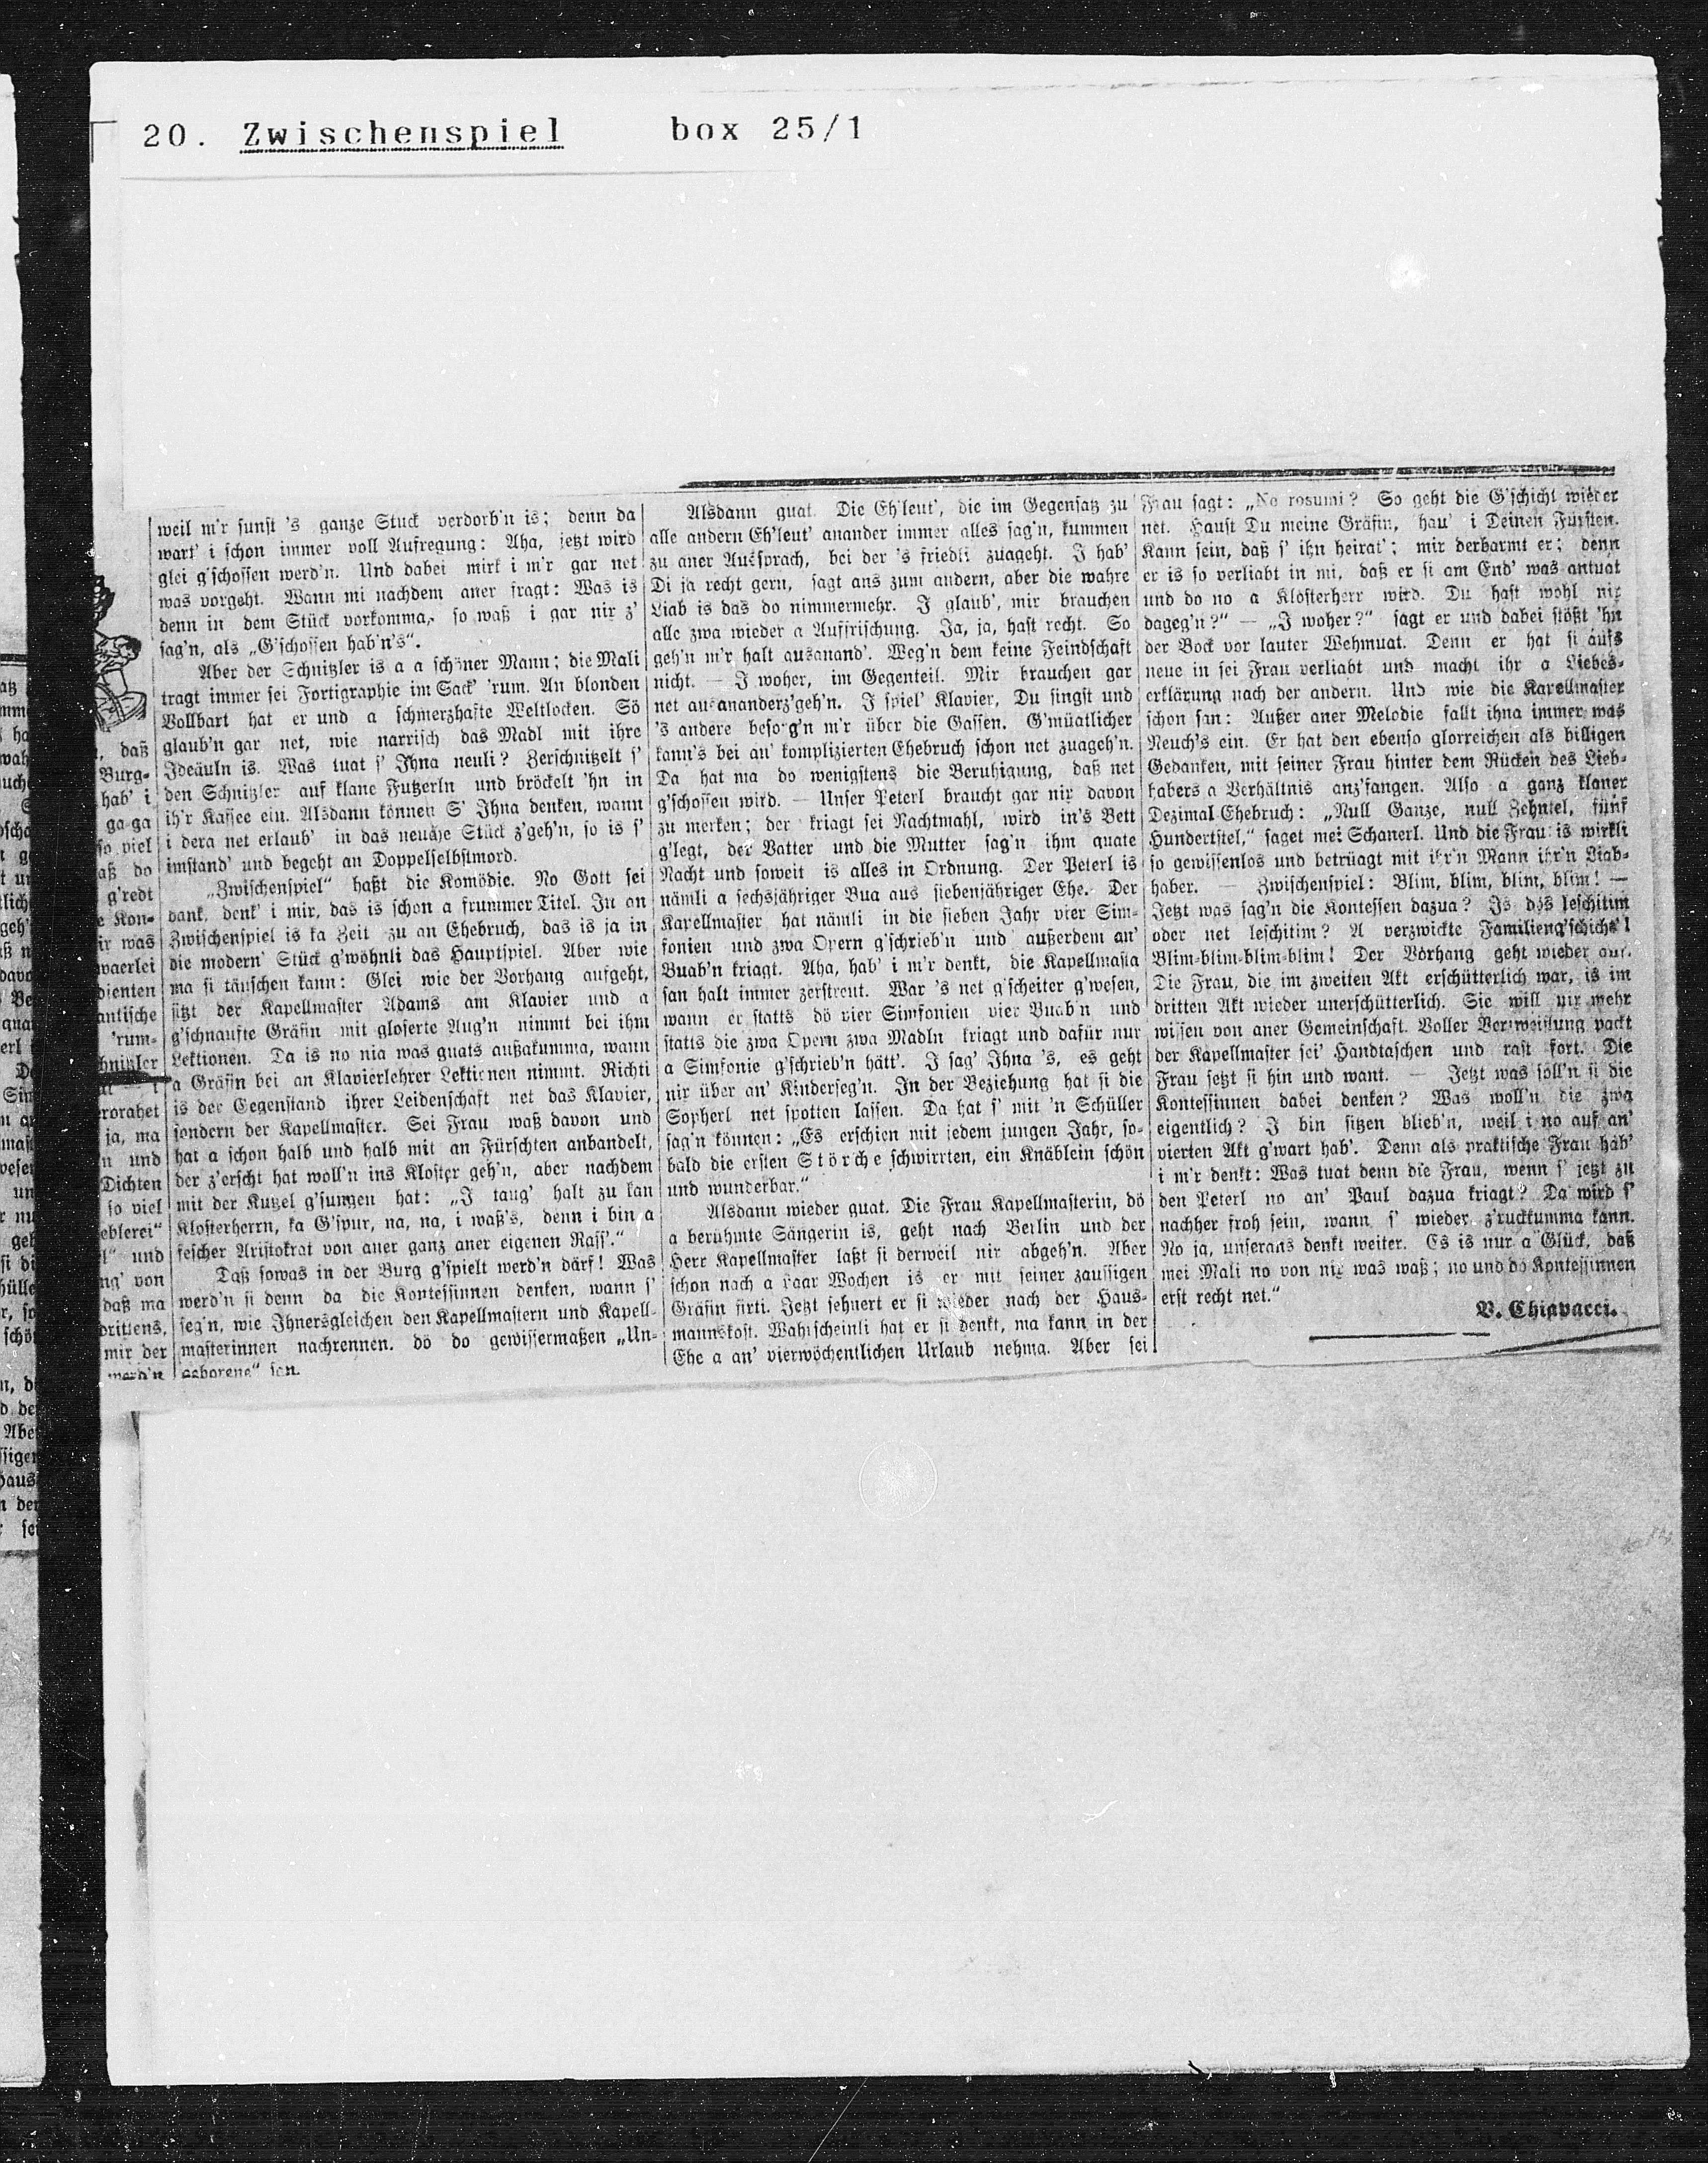 20. Zwischenspiel box 25/1
weil m'r sunst 's ganze Stuck verdorb'n is; denn da
wart' i schon immer voll Aufregung: Aha, jetzt wird
glei g'schossen werd'n. Und dabei mirk i m'r gar net
was vorgeht. Wann mi nachdem aner fragt: Was is
denn in dem Stück vorkomma, so waß i gar nix z'
sag'n, als „G'schossen hab'n's“.
Aber der Schnitzler is a a schöner Mann; die Mali
tragt immer sei Fortigraphie im Sack 'rum. An blonden
Vollbart hat er und a schmerzhafte Weltlocken. Sö
glaub'n gar net, wie narrisch das Madl mit ihre
Ideäuln is. Was tuat s' Ihna neuli? Zerschnitzelt s'
den Schnitzler auf klane Futzerln und bröckelt 'hn in
ih'r Kaffee ein. Alsdann können S' Ihna denken, wann
i dera net erlaub' in das neuche Stück z'geh'n, so is s'
imstand' und begeht an Doppelselbstmord.
„Zwischenspiel“ haßt die Komödie. No Gott sei
dank, denk' i mir, das is schon a frummer Titel. In an
Zwischenspiel is ka Zeit zu an Ehebruch, das is ja in
die modern' Stück g'wöhnli das Hauptspiel. Aber wie
ma si täuschen kann: Glei wie der Vorhang aufgeht,
sitzt der Kapellmaster Adams am Klavier und a
g'schnaufte Gräfin mit gloserte Aug'n nimmt bei ihm
Lektionen. Da is no nia was guats außakumma, wann
a Gräfin bei an Klavierlehrer Lektionen nimmt. Richti
is der Gegenstand ihrer Leidenschaft net das Klavier,
sondern der Kapellmaster. Sei Frau waß davon und
hat a schon halb und halb mit an Fürschten anbandelt,
der z'erscht hat woll'n ins Kloster geh'n, aber nachdem
mit der Kutzel g'sungen hat: „I taug' halt zu kan
Klosterherrn, ka G'spur, na, na, i waß's, denn i bin a
fescher Aristokrat von aner ganz aner eigenen Rass'.“
Daß sowas in der Burg g'spielt werd'n därf! Was
werd'n si denn da die Kontessinnen denken, wann s'
seg'n, wie Ihnersgleichen den Kapellmastern und Kapell-
masterinnen nachrennen, dö do gewissermaßen „Un-
geborene“ san.
Alsdann guat. Die Eh'leut', die im Gegensatz zu
alle andern Eh'leut' anander immer alles sag'n, kummen
zu aner Aussprach, bei der 's friedli zuageht. I hab'
Di ja recht gern, sagt ans zum andern, aber die wahre
Liab is das do nimmermehr. I glaub', mir brauchen
alle zwa wieder a Auffrischung. Ja, ja, hast recht. So
geh'n m'r halt ausanand'. Weg'n dem keine Feindschaft
nicht. — I woher, im Gegenteil. Mir brauchen gar
net ausananderz'geh'n. I spiel' Klavier, Du singst und
's andere besorg'n m'r über die Gassen. G'müatlicher
kann's bei an' komplizierten Ehebruch schon net zuageh'n.
Da hat ma do wenigstens die Beruhigung, daß net
g'schossen wird. — Unser Peterl braucht gar nix davon
zu merken; der kriagt sei Nachtmahl, wird in's Bett
g'legt, der Vatter und die Mutter sag'n ihm guate
Nacht und soweit is alles in Ordnung. Der Peterl is
nämli a sechsjähriger Bua aus siebenjähriger Ehe. Der
Kapellmaster hat nämli in die sieben Jahr vier Sim-
fonien und zwa Opern g'schrieb'n und außerdem an'
Buab'n kriagt. Aha, hab' i m'r denkt, die Kapellmasta
san halt immer zerstreut. War 's net g'scheiter g'wesen,
wann er statts dö vier Simfonien vier Buab'n und
statts die zwa Opern zwa Madln kriagt und dafür nur
a Simfonie g'schrieb'n hätt'. I sag' Ihna 's, es geht
nix über an' Kinderseg'n. In der Beziehung hat si die
Sopherl net spotten lassen. Da hat s' mit 'n Schüller
sag'n können: „Es erschien mit jedem jungen Jahr, so-
bald die ersten Störche schwirrten, ein Knäblein schön
und wunderbar.“
Alsdann wieder guat. Die Frau Kapellmasterin, dö
a berühmte Sängerin is, geht nach Berlin und der
Herr Kapellmaster laßt si derweil nix abgeh'n. Aber
schon nach a paar Wochen is er mit seiner zaussigen
Gräfin firti. Jetzt sehnert er si wieder nach der Haus-
mannskost. Wahrscheinli hat er si denkt, ma kann in der
Ehe a an' vierwöchentlichen Urlaub nehma. Aber sei
Frau sagt: „Ne rosumi? So geht die G'schicht wieder
net. Haust Du meine Gräfin, hau' i Deinen Fürsten.
Kann sein, daß s' ihn heirat'; mir derbarmt er; denn
er is so verliabt in mi, daß er si am End' was antuat
und do no a Klosterherr wird. Du hast wohl nix
dageg'n?“ — „I woher?“ sagt er und dabei stößt 'hn
der Bock vor lauter Wehmuat. Denn er hat si aufs
neue in sei Frau verliabt und macht ihr a Liebes-
erklärung nach der andern. Und wie die Kapellmaster
schon san: Außer aner Melodie fallt ihna immer was
Neuch's ein. Er hat den ebenso glorreichen als billigen
Gedanken, mit seiner Frau hinter dem Rücken des Lieb-
habers a Verhältnis anz'fangen. Also a ganz klaner
Dezimal-Ehebruch: „Null Ganze, null Zehntel, fünf
Hundertstel,“ saget mei Schanerl. Und die Frau is wirkli
so gewissenlos und betrüagt mit ihr'n Mann ihr'n Liab-
haber. — Zwischenspiel: Blim, blim, blim, blim! —
Jetzt was sag'n die Kontessen dazua? Is dös leschitim
oder net leschitim? A verzwickte Familieng'schicht'!
Blim-blim-blim-blim! Der Vorhang geht wieder auf.
Die Frau, die im zweiten Akt erschütterlich war, is im
dritten Akt wieder unerschütterlich. Sie will nix mehr
wissen von aner Gemeinschaft. Voller Verzweiflung packt
der Kapellmaster sei' Handtaschen und rast fort. Die
Frau setzt si hin und want. — Jetzt was soll'n si die
Kontessinnen dabei denken? Was woll'n die zwa
eigentlich? I bin sitzen blieb'n, weil i no auf an'
vierten Akt g'wart hab'. Denn als praktische Frau hab'
i m'r denkt: Was tuat denn die Frau, wenn s' jetzt zu
den Peterl no an' Paul dazua kriagt? Da wird s'
nachher froh sein, wann s' wieder z'ruckkumma kann.
No ja, unserans denkt weiter. Es is nur a Glück, daß
mei Mali no von nix was waß; no und dö Kontessinnen
erst recht net.“
V. Chiavacci.